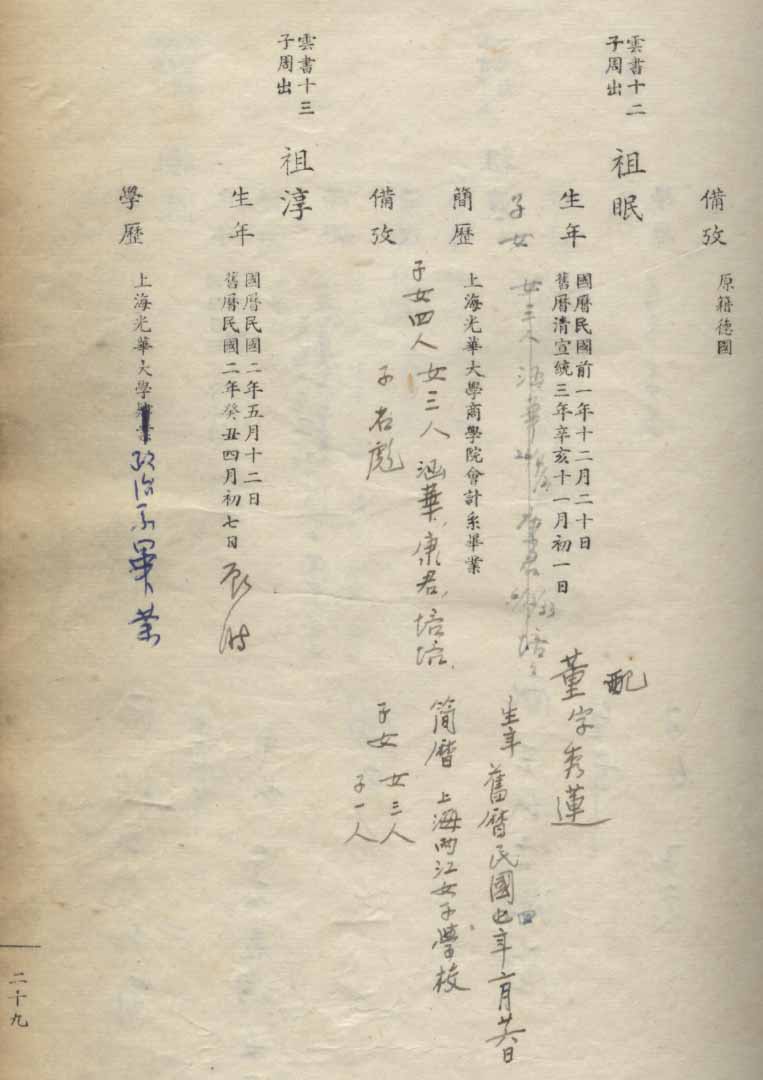 備攷
原籍德國
雲書十二
子周出
祖眠
生年
國曆民國前一年十二月二十日
舊曆清宣統三年辛亥十一月初一日
配
董字秀蓮
子女
女三人涵華
康君
培
生年 舊曆民國七年
簡歷
上海光華大學商學院會計系畢業
簡曆 上海兩江女子學校
子女四人 女三人 涵華,康君,培培,
子 名彪
子女 女三人
子一人
備攷
雲書十三
子周出
祖淳
生年
國曆民國二年五月十二日
舊曆民國二年癸丑四月初七日
學歷
上海光華大學
政治系畢業
二十九